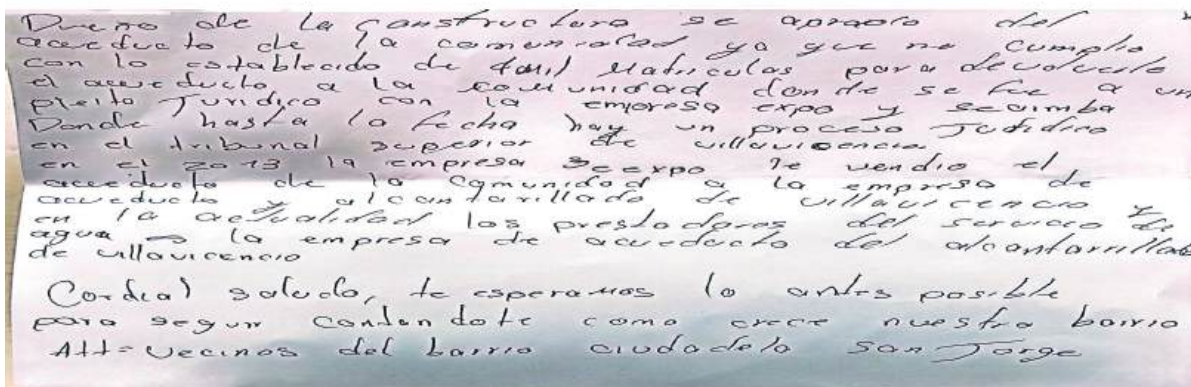 Dueño de la constructora se apropio del
acueducto de la comunidad ya que no cumplio
con lo establecido de 4mil Matriculas para devolverle
el acueducto a la comunidad donde se fue a un
pleito Juridico con la empresa expo y
Donde hasta la fecha hay un proceso Juridico
en el tribunal superior de villavicencio
en el 2013 la empresa Seexpo le vendio el
acueducto de la comunidad a la empresa de
acueducto y alcantarillado de villavicencio y
en la actualidad los prestadores del servicio de
agua es la empresa de acueducto del alcantarillado
de villavicencio
Cordial saludo, te esperamos lo antes posible
para seguir contandote como crece nuestro barrio
Att= vecinos del barrio ciudadela San Jorge